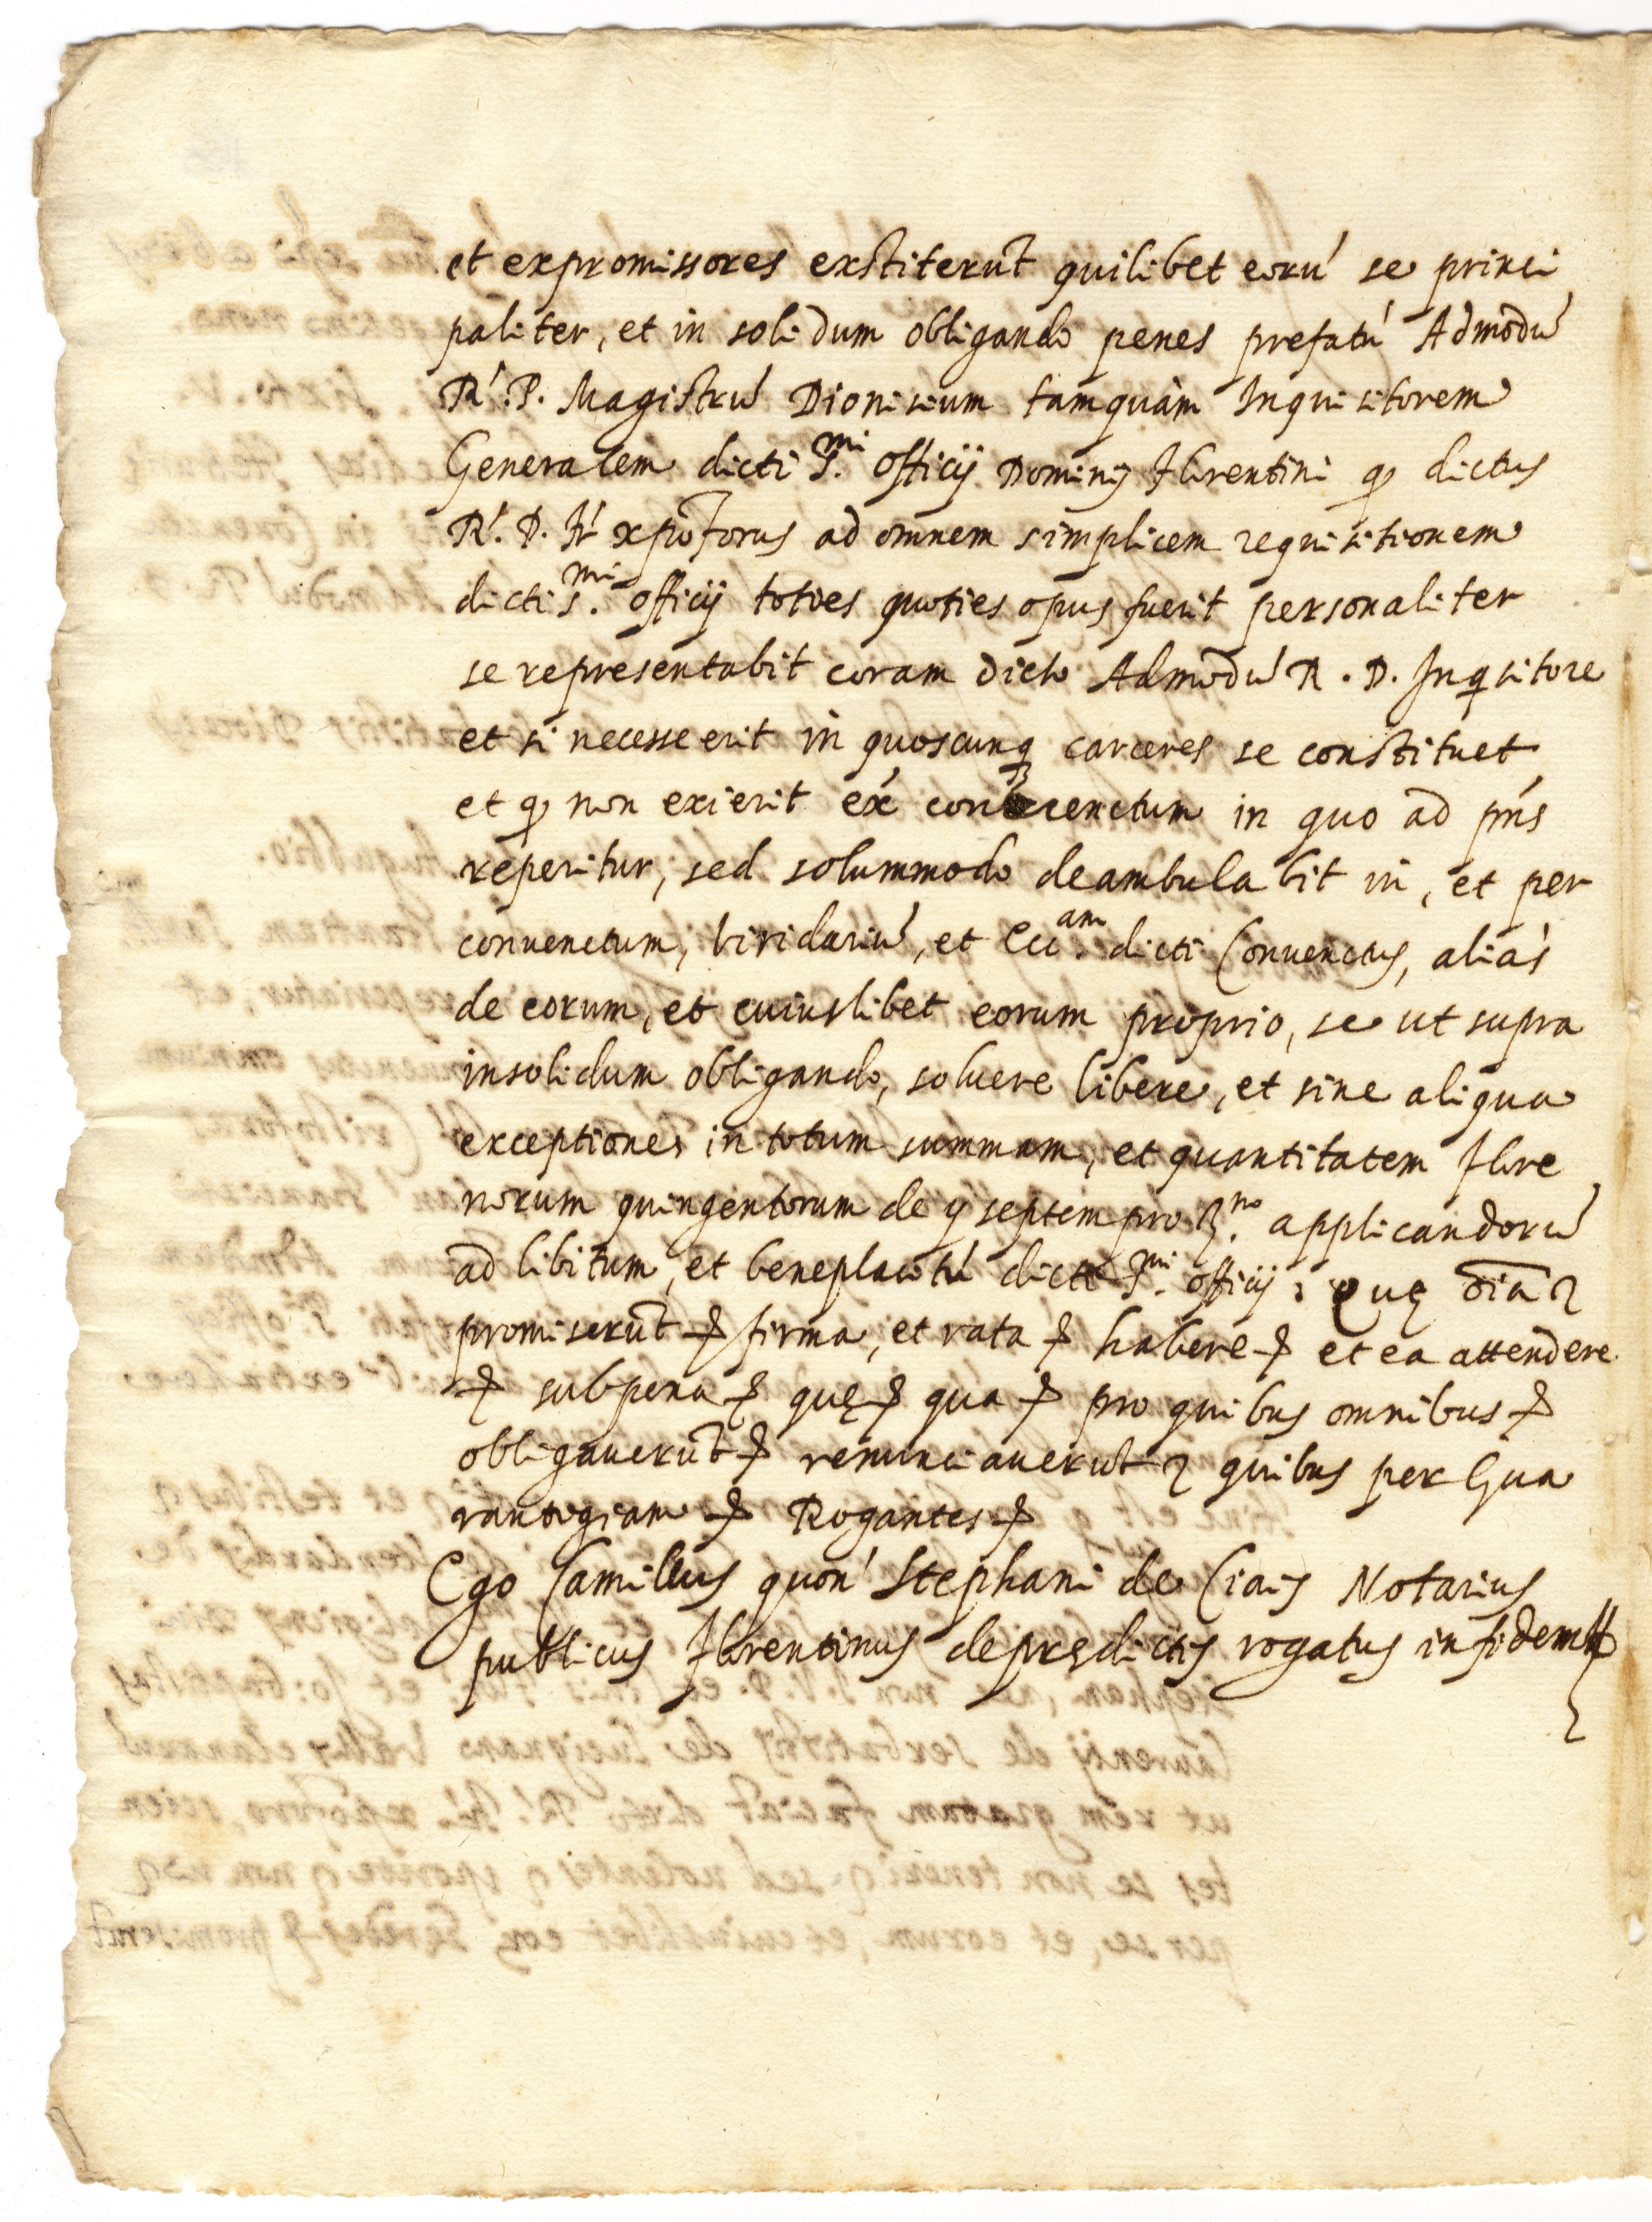 et expromissores exstiterūt quilibet eorū se princi
paliter, et in solidum obligando penes prefatū Admodū
R.' P. Magistrū Dionisium tamquàm Inquisitorem
Generalem dicti S.mi officij Dominij Florentini qɔ dictus
R.' P. Fr' xpoforus ad omnem simplicem requisitionem
dicti s.mi officij toties quoties opus fuerit personaliter
se representabit coram dicto Admodū R. P. Inqsitore
et si necesse erit in quoscunq carceres se constituet
et qɔ non exierit ex conuenctum in quo ad pn̄s
reperitur, sed solummodo deambulabit in, et per
conuenctum, viridariū, et Ecc.am dicti Conuenctus, aliàs
de eorum, et cuiuslibet eorum proprio, se ut supra
insolidum obligando, soluere libere, et sine aliqua
exceptiones in totum summam, et quantitatem Flore
norum quingentorum de septem pro applicandorū
ad libitum, et beneplacitū dicti S.mi officij: Quę oīa
promiserūt & firma, et rata & habere & et ea attendere
& sub pena & quę & qua & pro quibus omnibus &
obligauerūt & renunciauerūt quibus per Gua
rantigiam & Rogantes &
Ego Camillus quon' Stephani de Ciais Notarius
publicus Florentinus de predictis rogatus in fidem